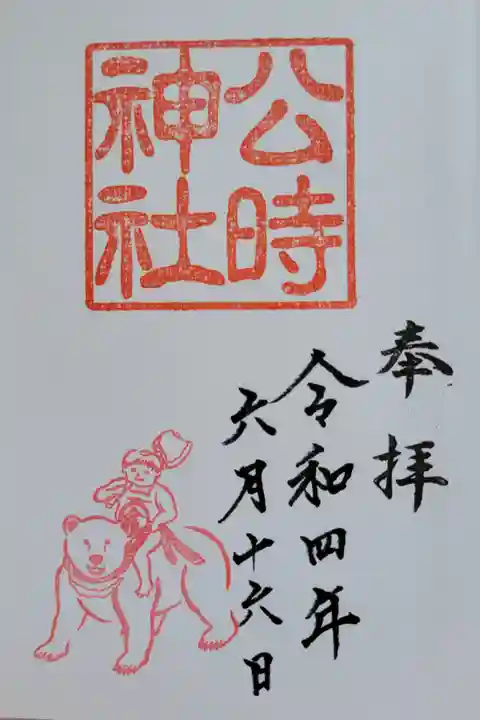 公時
神社
奉拝
令和四年
六月十六日